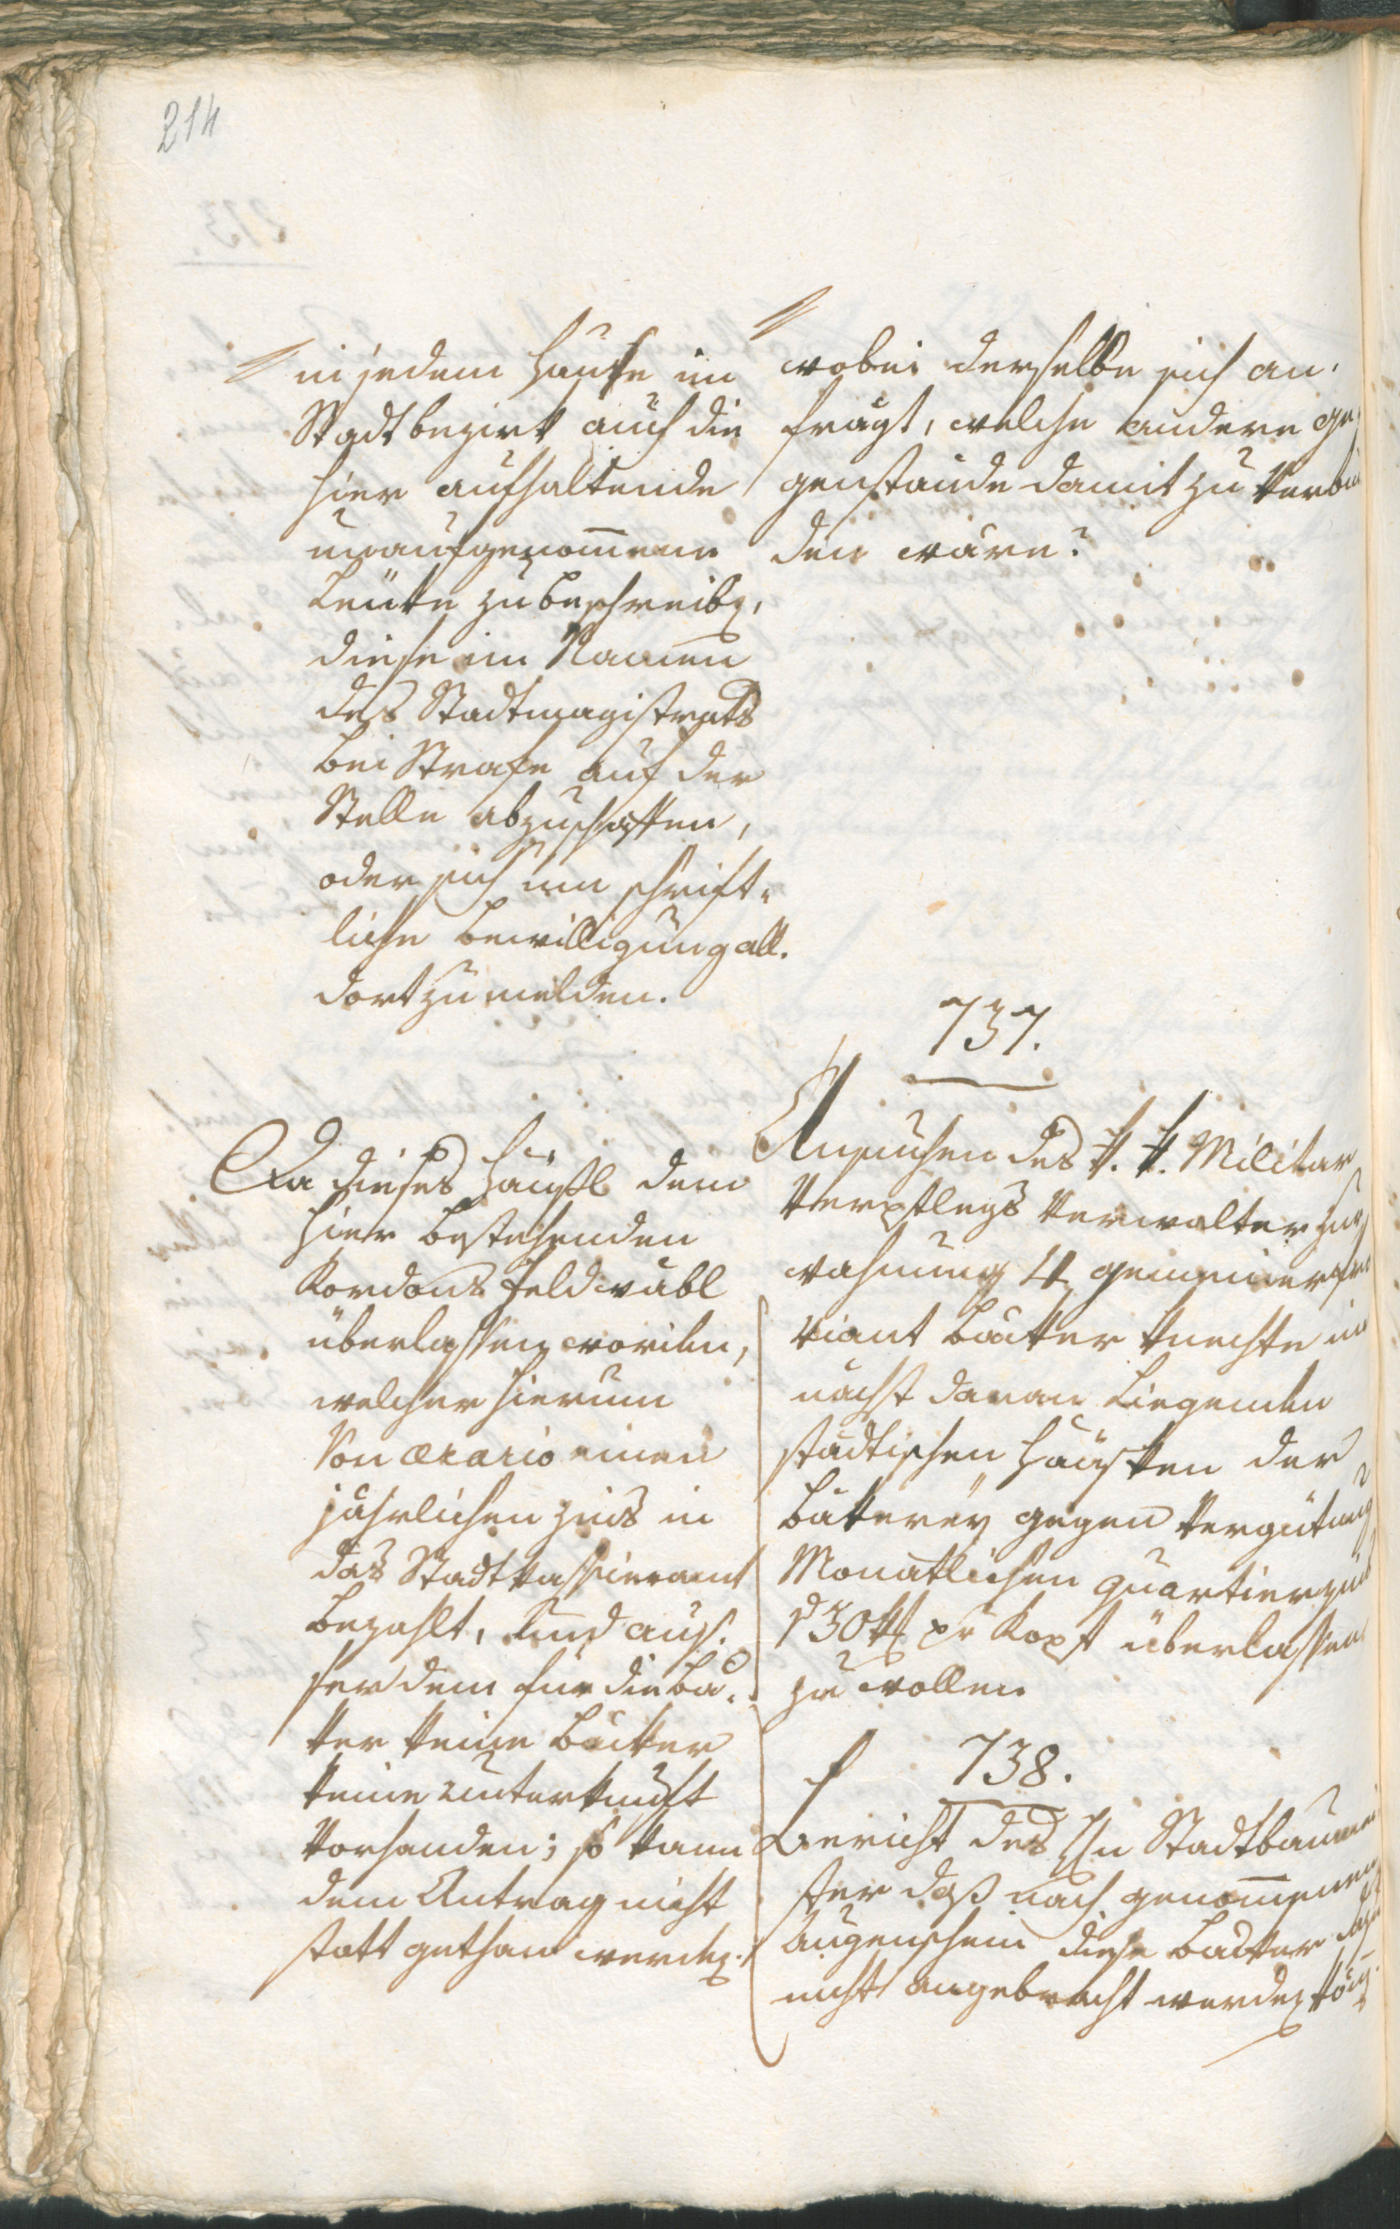 214
in jedem Hause im
Stadtbezirk auch die
hier aufhaltende
unaufgenom̅ene
Leute zu beschreibẽ,
diese im Namen
des Stadtmagistrats
bei Strafe auf der
Stelle abzuschaffen,
oder sich um schrift-
liche Bewilligung all-
dort zu melden.
wobei derselbe sich an-
fragt, welche andere Ge-
genstände damit zu Verbin
den wären?
Da dieses Häusl dem
hier bestehenden
Kordons Feldwäbl
überlassen worden,
welcher hierum
Von Ærario einen
jährlichen Zins in
das Stadtkassieramt
bezahlt, und aus-
ser dem für die Bä-
ker keine Bäker
keine Unterkunft
Vorhanden; so kann
dem Antrag nicht
statt gethan werdẽ.
737.
Ansuchen des k. k. Militar
Verpflegs Verwalter zur
wohnung 4 gemeiner Pro
viant Bäker Knechte im
nächst daran Liegenden
städtischen Häusken der
Bäkereÿ gegen Vergütung
Monatlichen Quartierzins
30 pr Kopf überlassen
zu wollen
738.
Bericht des Hn Stadtbaumei
ster daß nach genom̅enen
Augenschein diese Bäker
nicht angebracht werdẽ köñẽ.